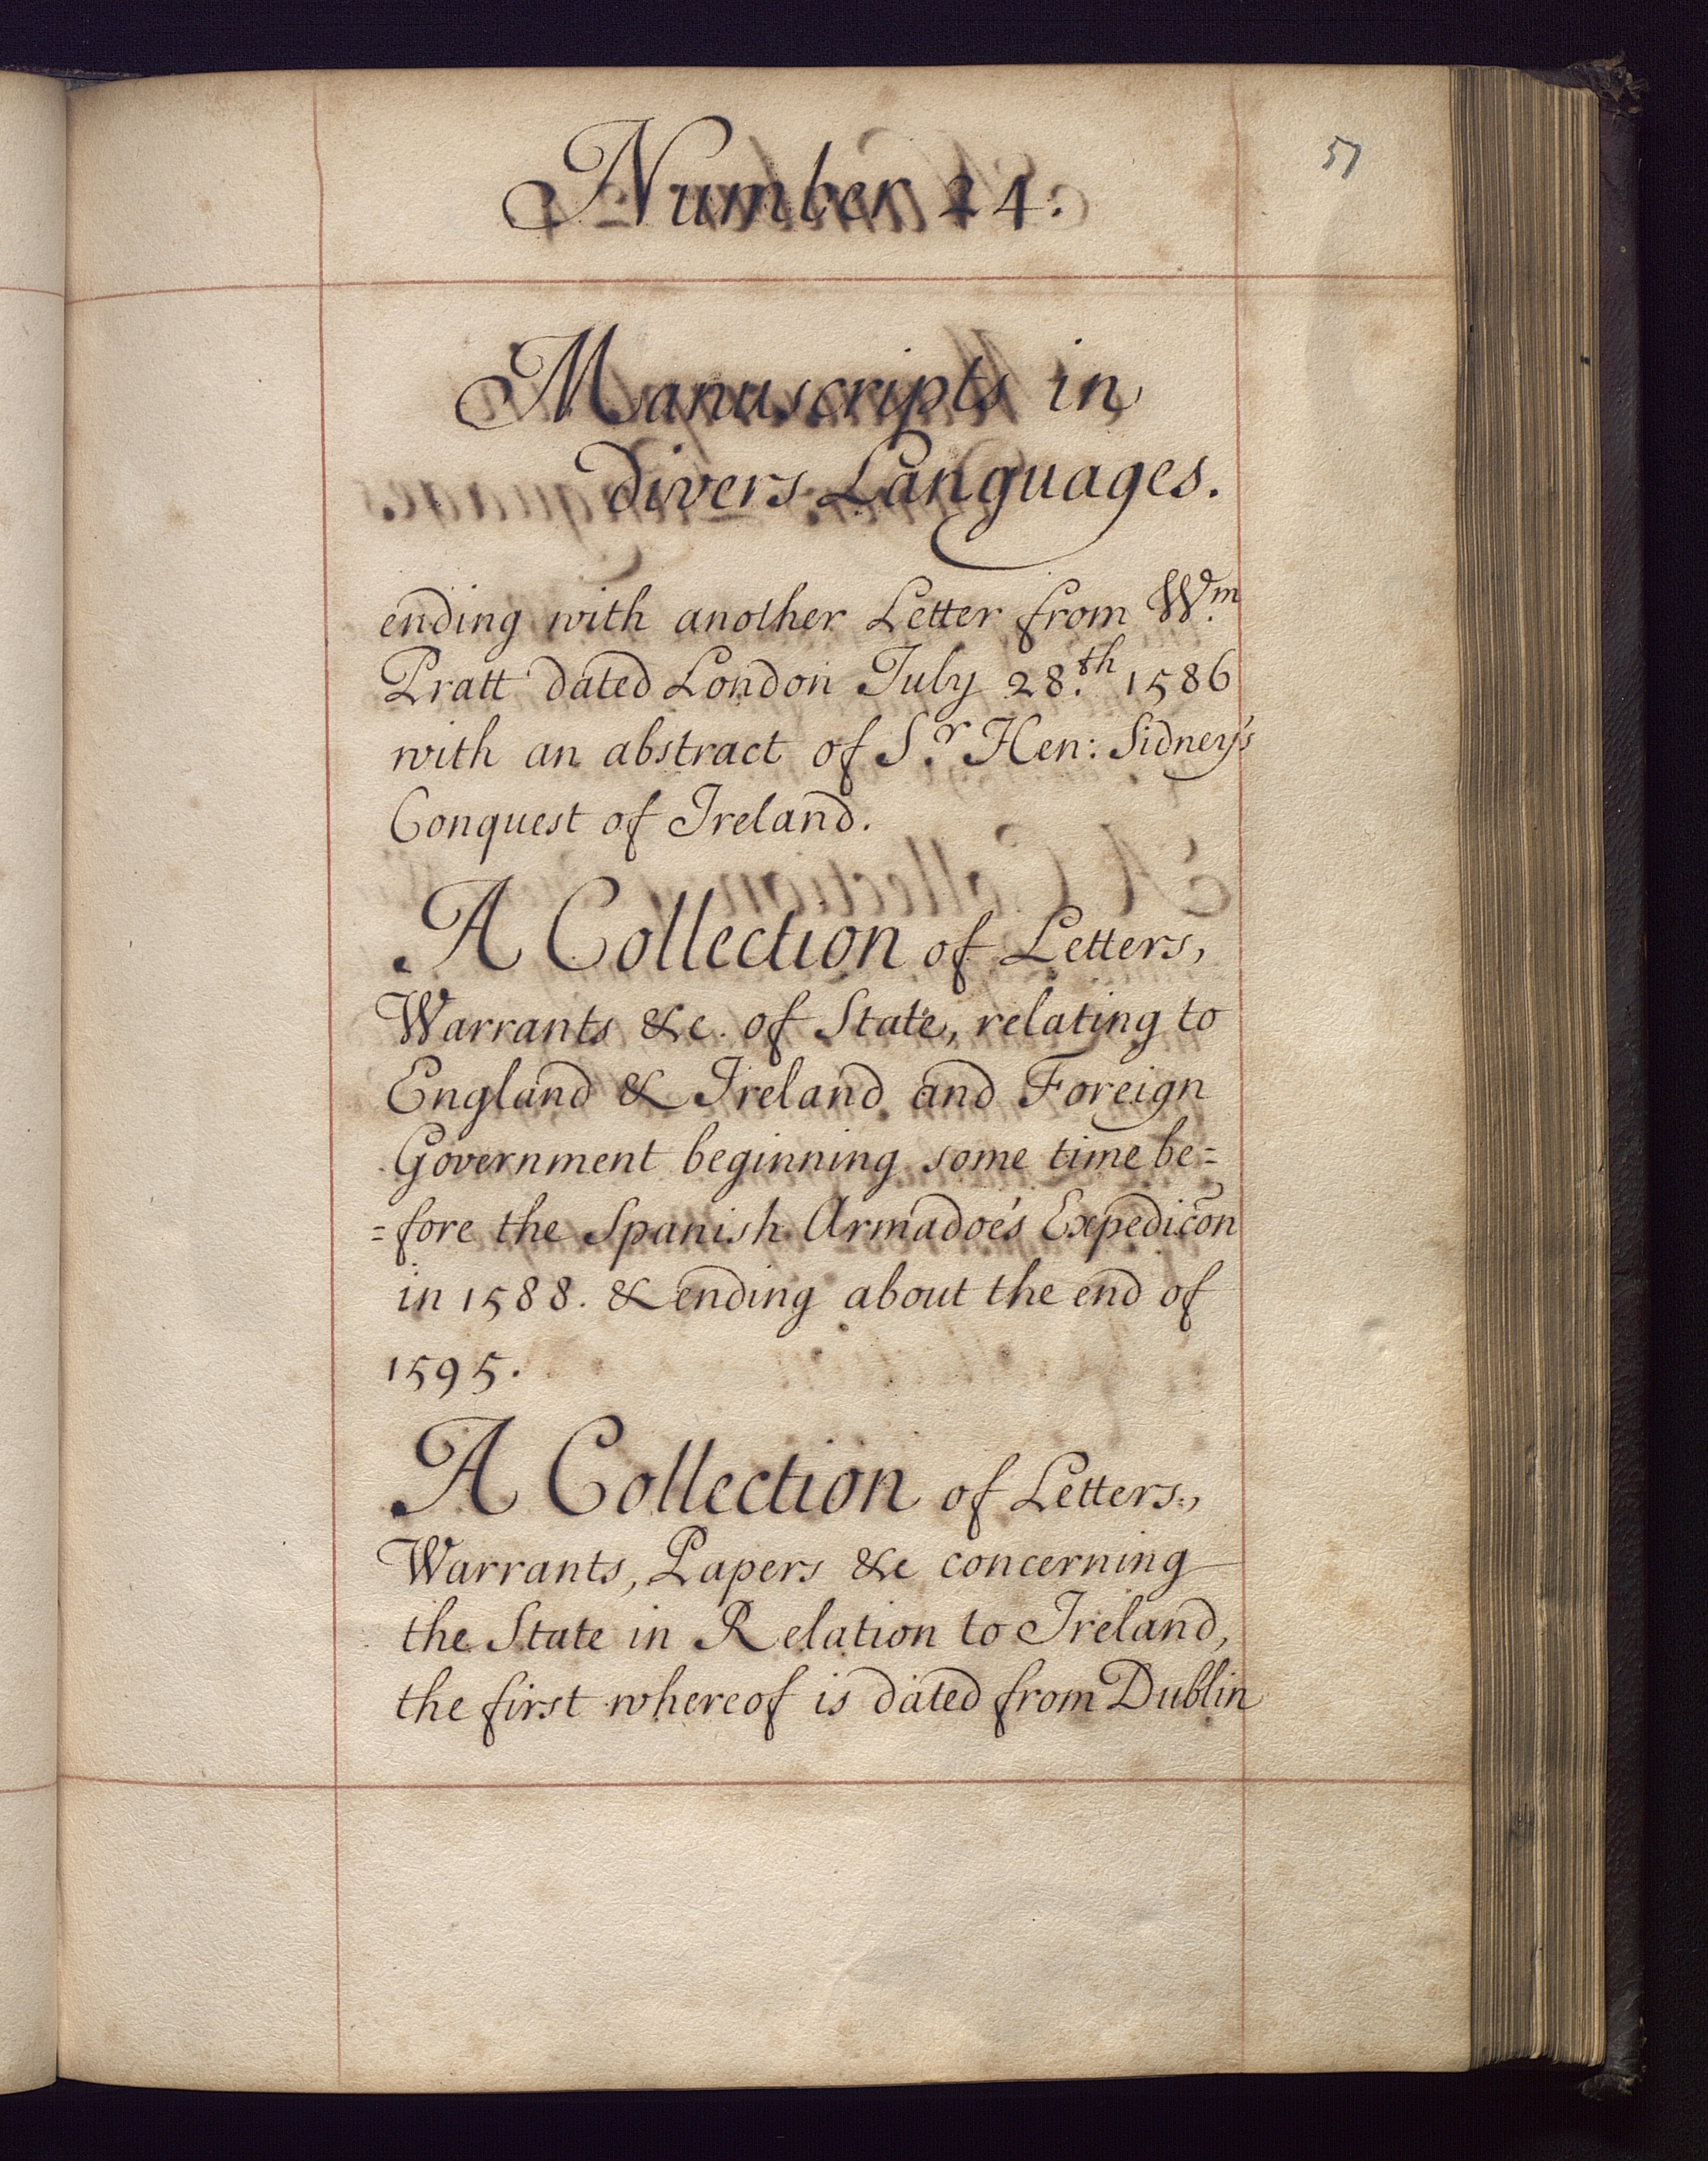 51
Number 24.
Manuscripts in
divers Languages.
ending with another Letter from Wm.
Pratt dated London July 28.th 1586
with an abstract of Sr. Hen: Sidney's
Conquest of Ireland.
A Collection of Letters,
Warrants &c. of State, relating to
England & Ireland and Foreign
Government beginning some time be=
=fore the Spanish Armadoe's Expedic̃on
in 1588. & ending about the end of
1595.
A Collection of Letters,
Warrants, Papers &c concerning
the State in Relation to Ireland,
the first whereof is dated from Dublin